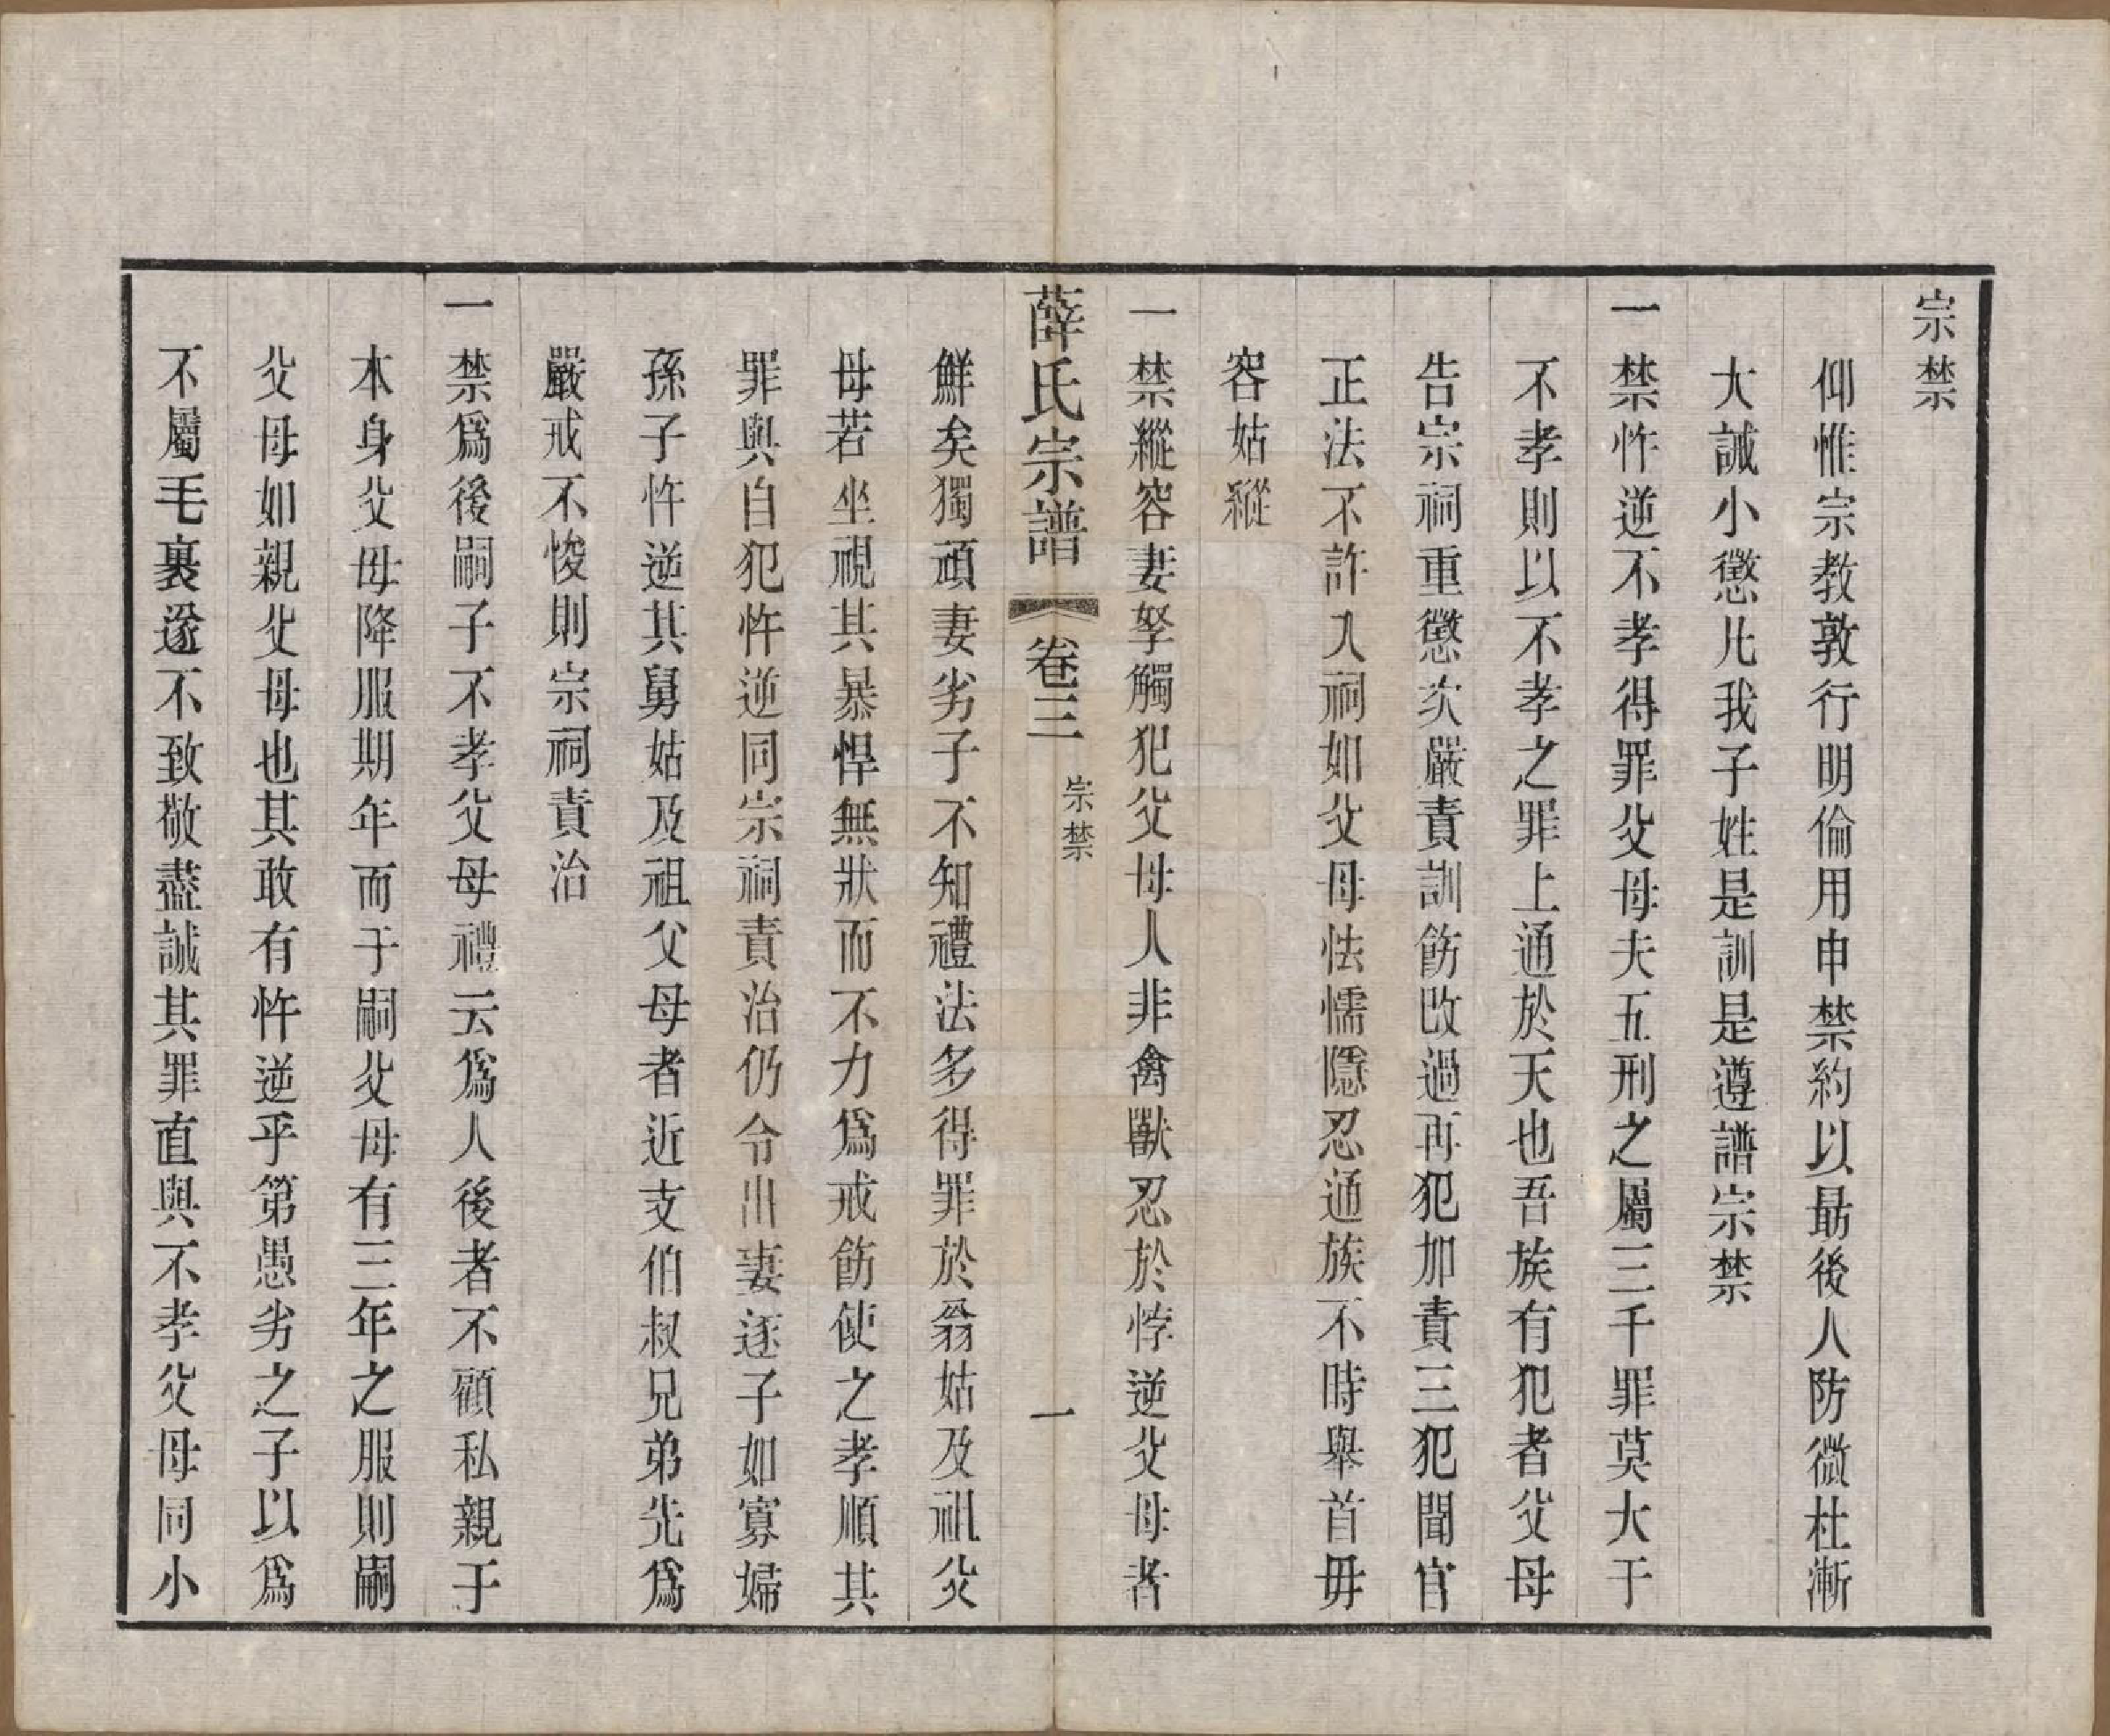 宗禁
仰惟宗教敦行明倫用申禁約以勗後人防微杜漸
大誡小懲凡我子姓是訓是遵譜宗禁
一禁忤逆不孝得罪父母夫五刑之屬三千罪莫大于
不孝則以不孝之罪上通於天也吾族有犯者父母
告宗祠重懲次嚴責訓飭改過再犯加責三犯聞官
正法不許入祠如父母怯懦隱忍通族不時舉首毋
容姑縱
一禁縱容妻孥觸犯父母人非禽獸忍於悖逆父母者
薛氏宗譜 卷三 宗禁 一
鮮矣獨頑妻劣子不知禮法多得罪於翁姑及祖父
母若坐視其暴悍無狀而不力為戒飭使之孝順其
罪與自犯忤逆同宗祠責治仍令出妻逐子如寡婦
孫子忤逆其舅姑及祖父母者近支伯叔兄弟先為
嚴戒不悛則宗祠責治
一禁爲後嗣子不孝父母禮云爲人後者不顧私親于
本身父母降服期年而于嗣父母有三年之服則嗣
父母如親父母也其敢有忤逆乎第愚劣之子以爲
不屬毛裏遂不致敬盡誠其罪直與不孝父母同小